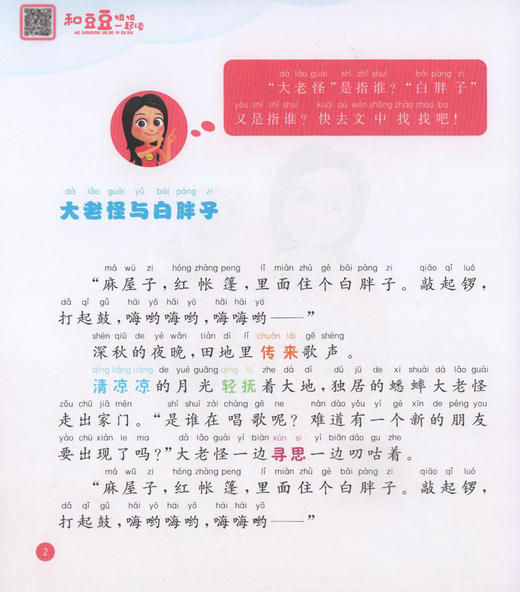 和豆豆姐姐一起读
HE DOUDOU JIEJIE YI QI DU
dà lǎo guài shì zhǐ shuí bái pàng zi
“大老怪”是指谁？“白胖子”
yòu shì zhǐ shuí kuài qù wén zhōng zhǎo zhao ba
又是指谁？快去文中找找吧！
dà lǎo guài yǔ bái pàng zi
大老怪与白胖子
má wū zi hóng zhàng peng lǐ miàn zhù gè bái pàng zi qiāo qǐ luó
“麻屋子，红帐篷，里面住个白胖子。敲起锣，
dǎ qǐ gǔ hāi yō hāi yō hāi hāi yō
打起鼓，嗨哟嗨哟，嗨嗨哟——”
shēn qiū de yè wǎn tián dì lǐ chuán lái gē shēng
深秋的夜晚，田地里传来歌声。
qīng liáng liáng de yuè guāng qīng fǔ zhe dà dì dú jū de xi shuài dà lǎo guài
清凉凉的月光轻抚着大地，独居的蟋蟀大老怪
zǒu chū jiā mén shì shuí zài chàng gē ne nán dào yǒu yí gè xīn de péng you
走出家门。“是谁在唱歌呢？难道有一个新的朋友
yào chū xiàn le ma dà lǎo guài yì biān xún si yì biān dáo gu zhe
要出现了吗？”大老怪一边寻思一边叨咕着。
má wū zi hóng zhàng peng lǐ miàn zhù gè bái pàng zi qiāo qǐ luó
“麻屋子，红帐篷，里面住个白胖子。敲起锣，
dǎ qǐ gǔ hāi yō hāi yō hāi hāi yō
打起鼓，嗨哟嗨哟，嗨嗨哟——”
2